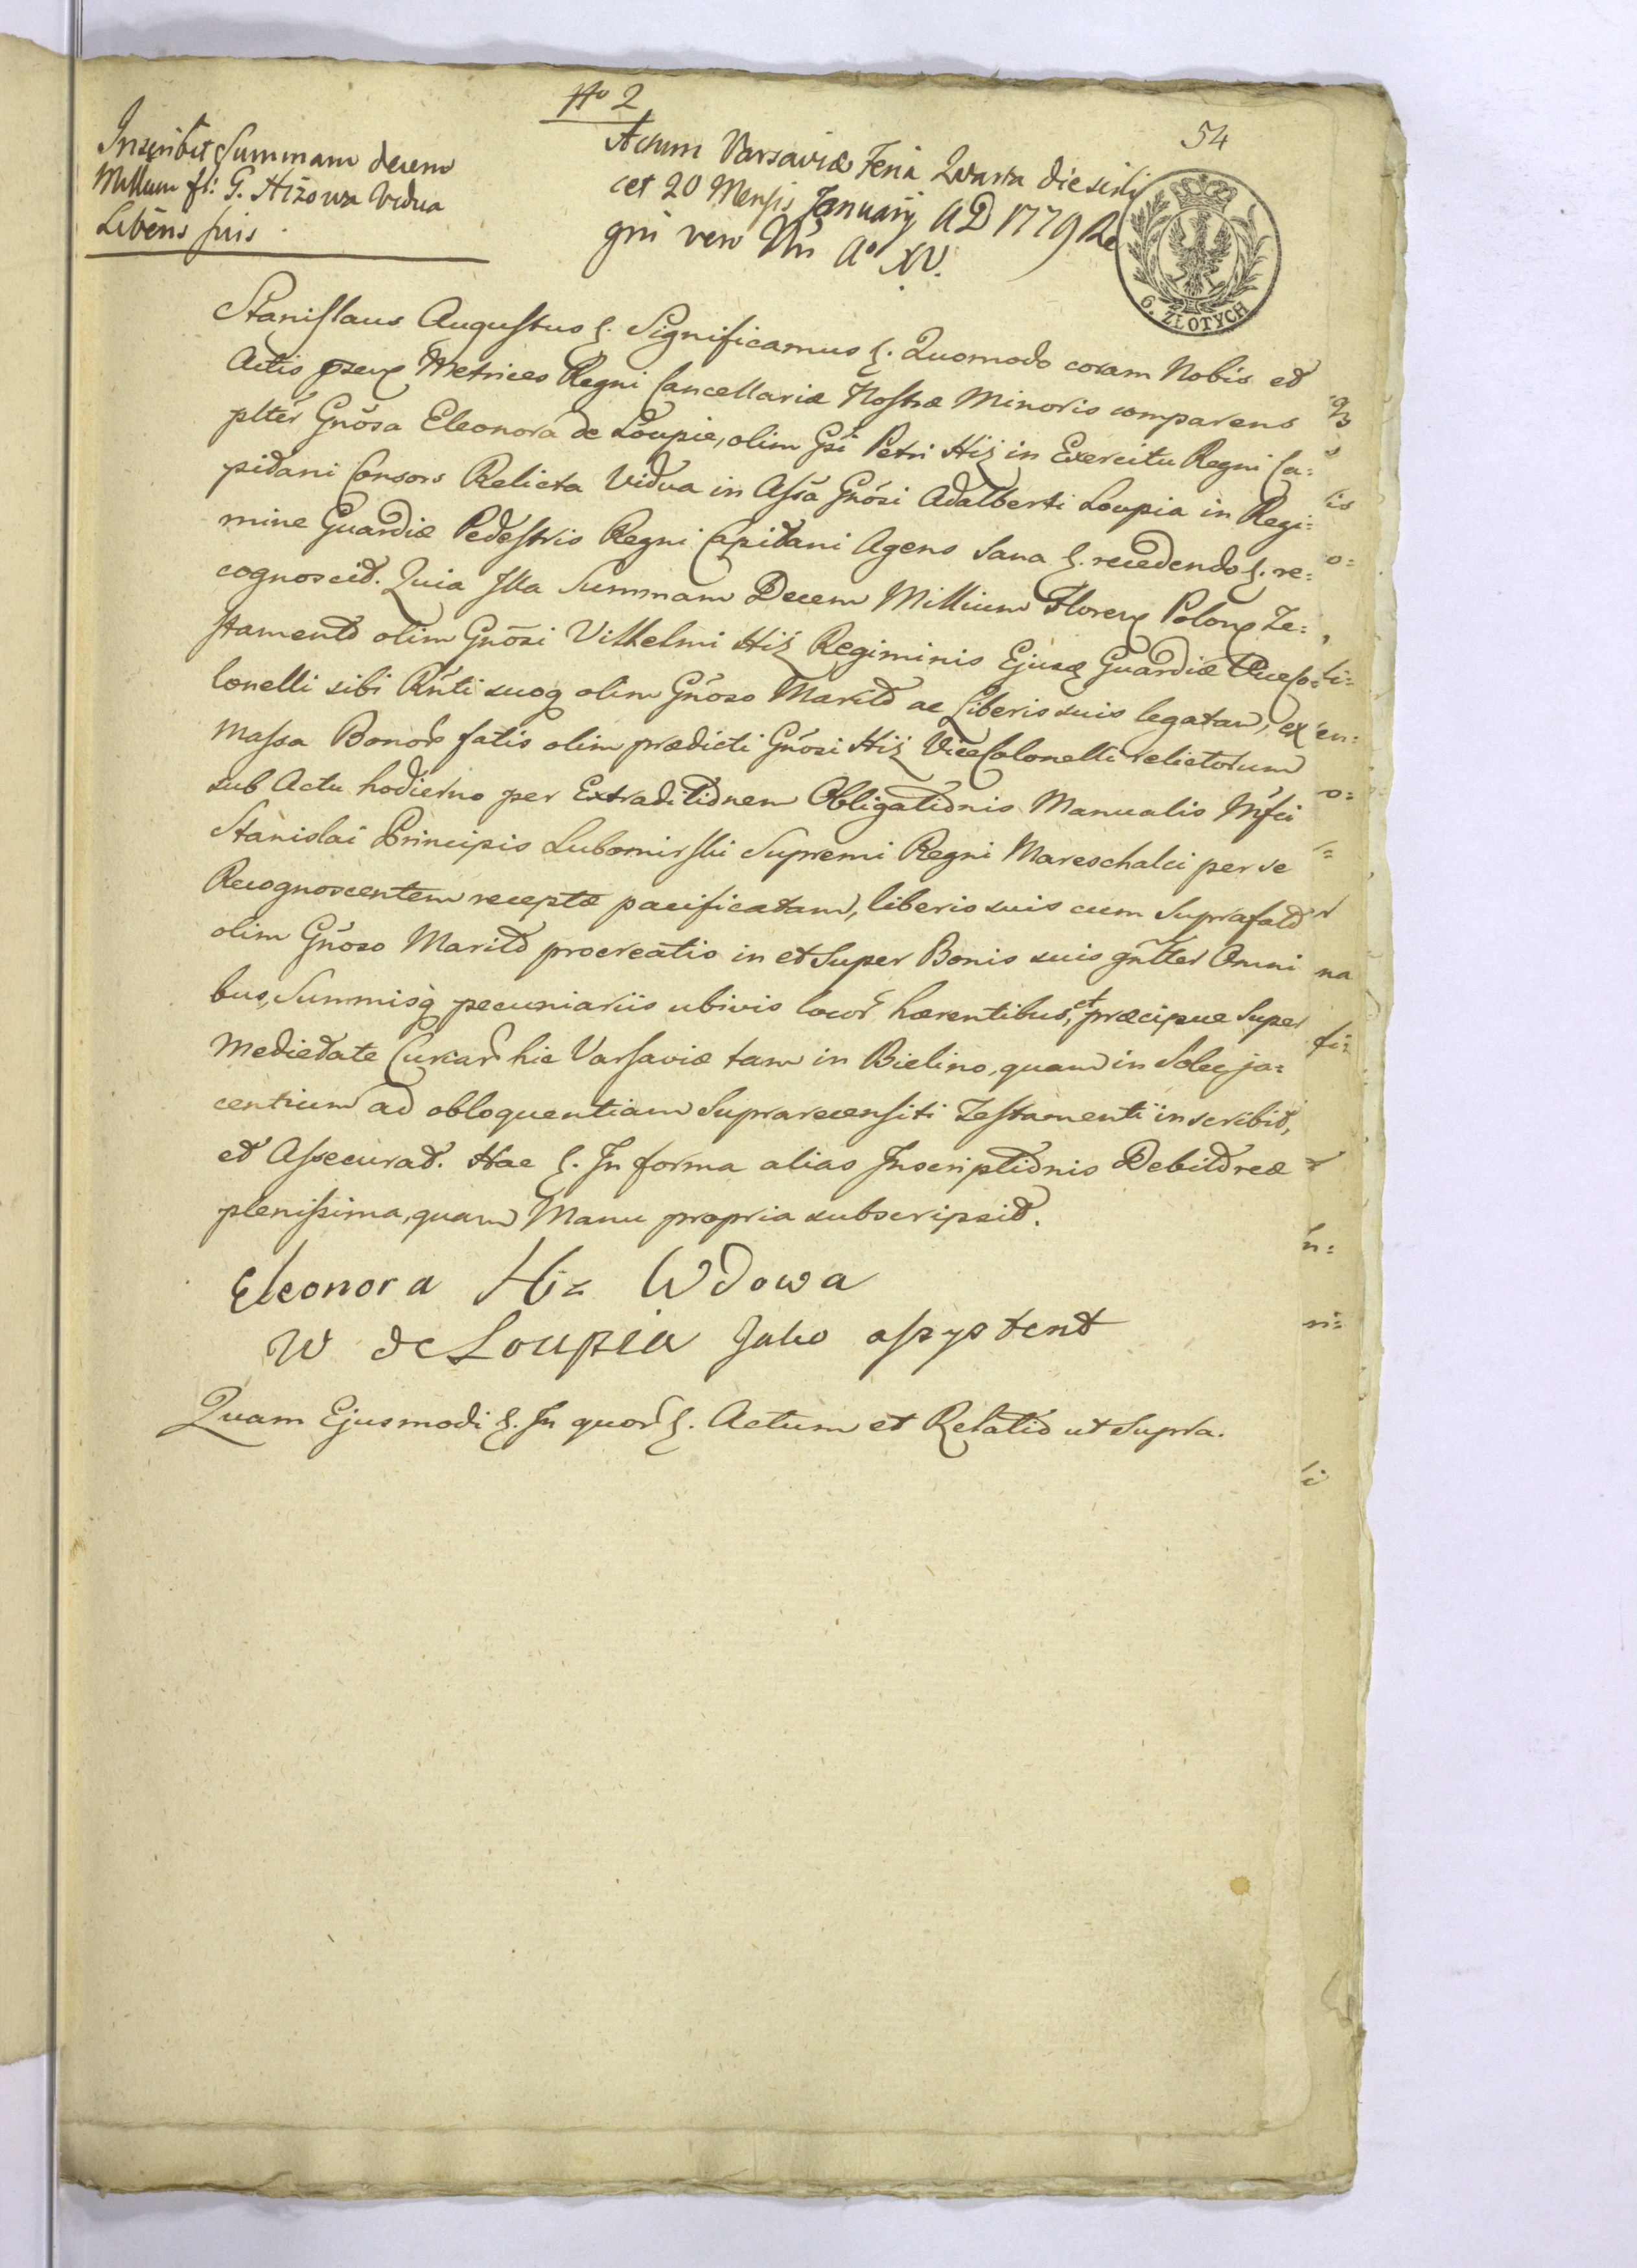 No 2
54
Inscribit Summam decem
Millium fl: G. Hiżowa Vidua
Liberis suis.
Actum Varsaviæ Feria Quarta die scili
cet 20 Mensis January AD 1779 Re
gni vero Nri Ao XV.
6. ZŁOTYCH
Stanislaus Augustus &. Significamus &. Quomodo coram Nobis et
Actis pnbus Metrices Regni Cancellariæ Nostræ Minoris comparens
plter Gnosa Eleonora de Loupie, olim Gsi Petri Hiż in Exercitu Regni Ca=
pitani Consors Relicta Vidua in Assa Gnosi Adalberti Loupia in Regi=
mine Guardiæ Pedestris Regni Capitani Agens Sana &. recedendo &. re=
cognoscit. Quia Illa Summam Decem Millium Floren Polon Te=
stamento olim Gnosi Vilhelmi Hiż Regiminis Ejusd Guardiæ ViceCo=
lonelli sibi Rnti suoq olim Gnoso Marito ac Liberis suis legatam, ex
Massa Bonor fatis olim prædicti Gnosi Hiż ViceColonelli relictorum
sub Actu hodierno per Extraditionem Obligationis Manualis Mfci
Stanislai Principis Lubomirski Supremi Regni Mareschalci per se
Recognoscentem receptæ pacificatam, liberis suis cum Suprafato
olim Gnoso Marito procreatis in et Super Bonis suis gnlter Omni
bus, Summisq pecuniariis ubivis locor hærentibus, et præcipue Super
Medietate Curiar hic Varsaviæ tam in Bielino, quam in Solec ja=
centium ad obloquentiam Suprarecensiti Testamenti inscribit,
et Assecurat. Hac &. In forma alias Inscriptionis Debitoreæ
plenissima, quam Manu propria subscripsit.
Eleonora Hiz Wdowa
W de Loupia Jako assystent
Quam Ejusmodi &. In quor &. Actum et Relatio ut Supra.